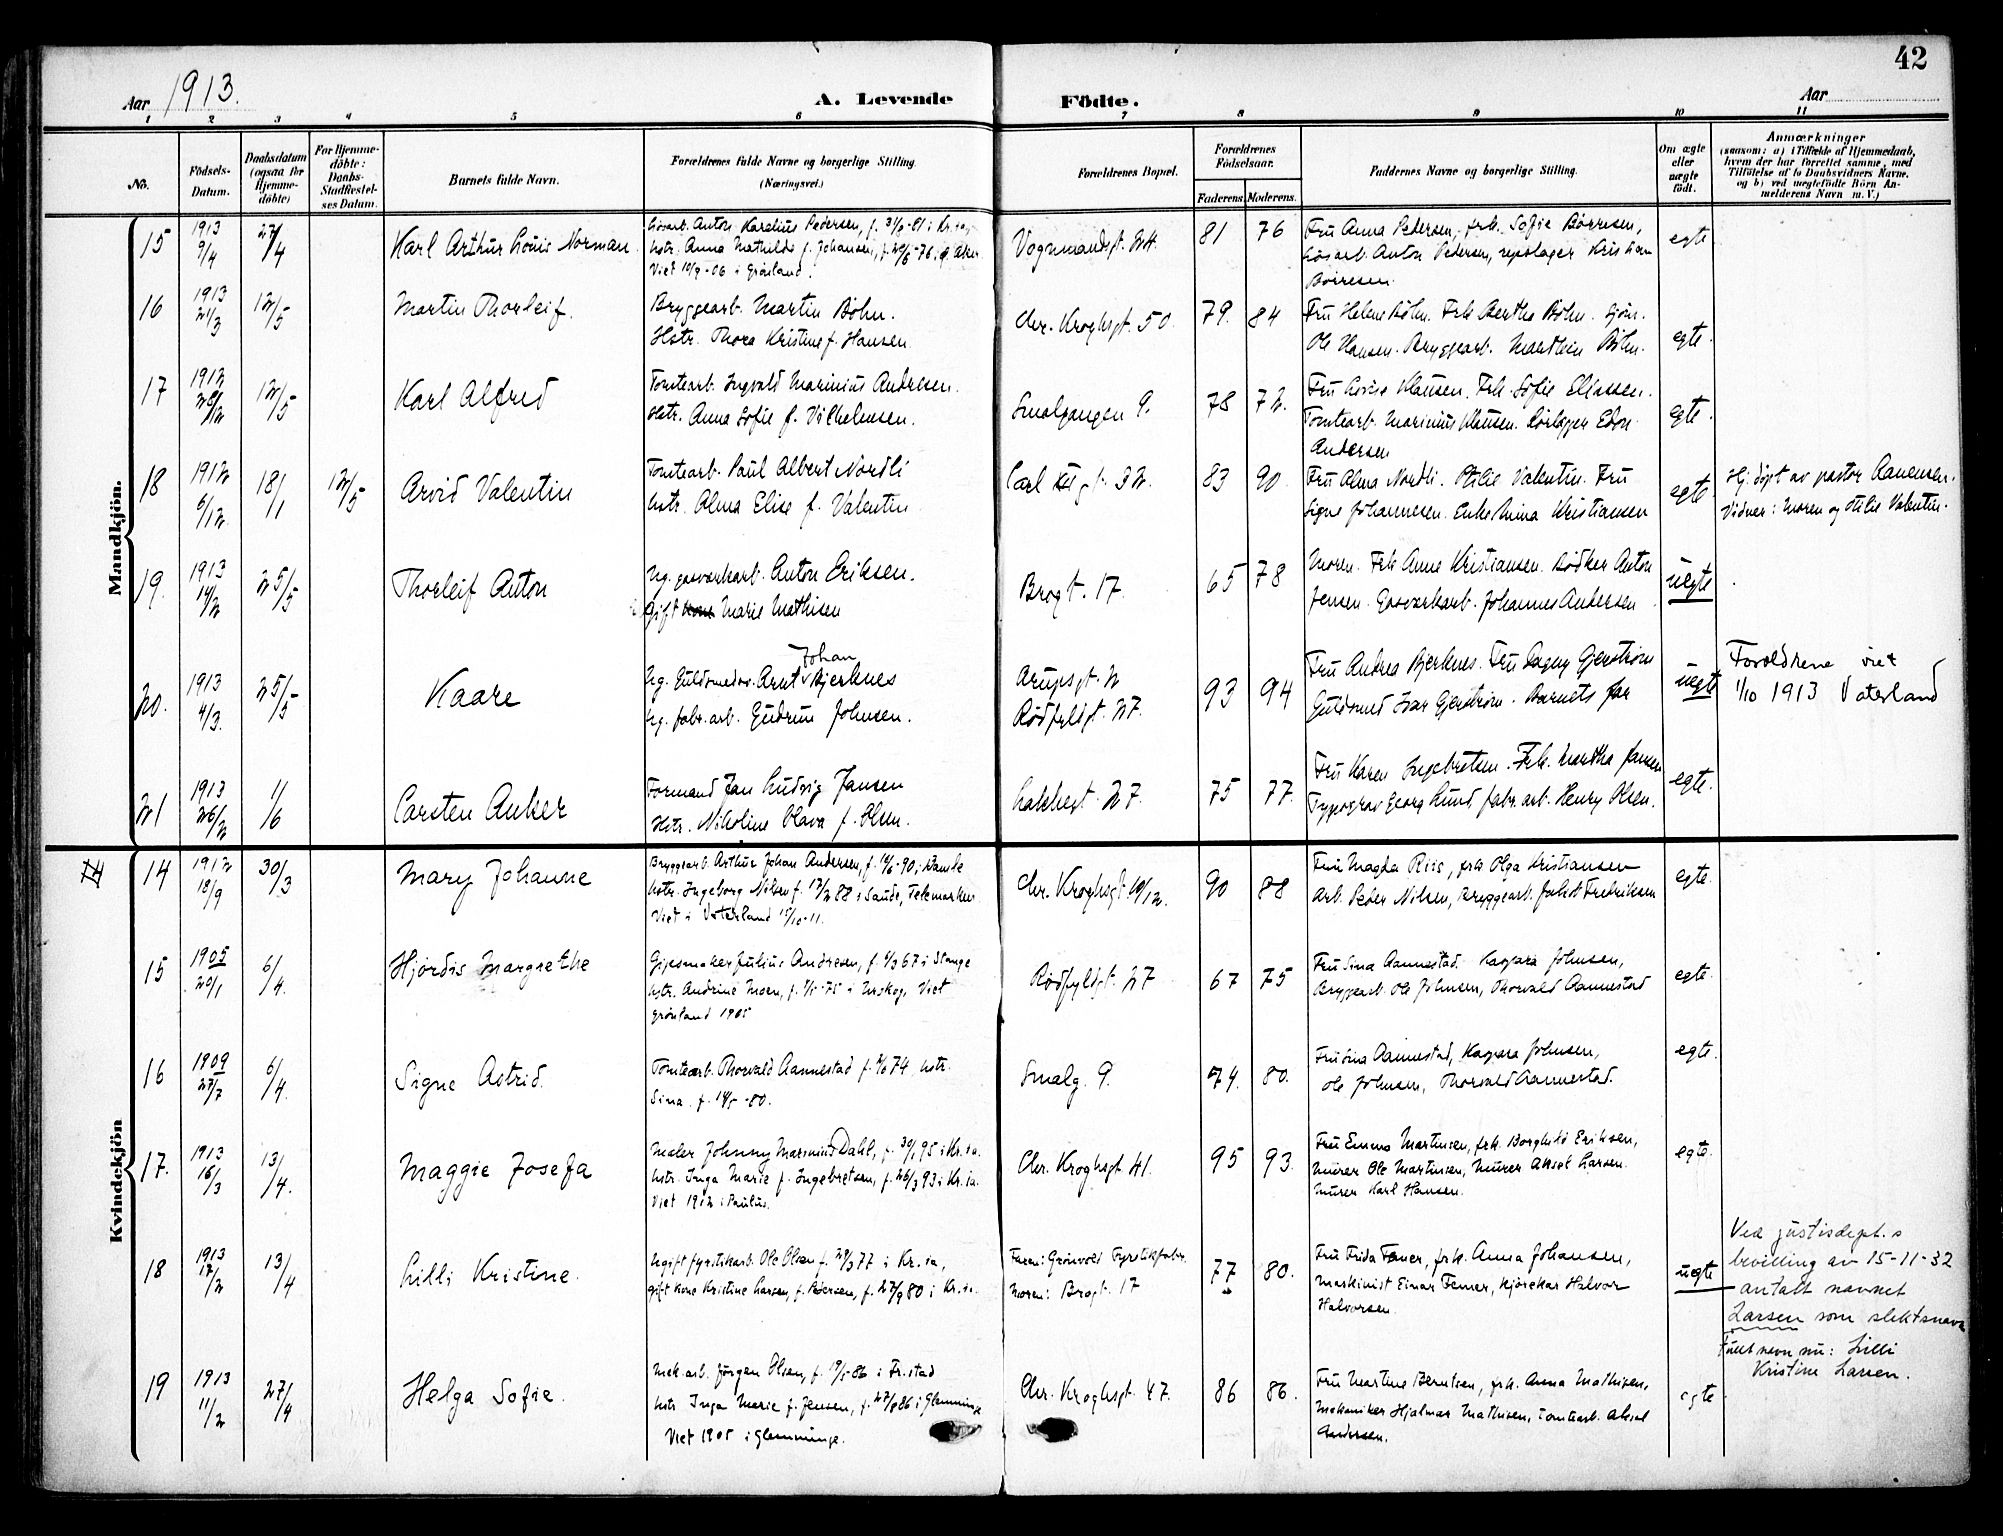 42
Aar 1913.
A. Levende Födte.
Aar
1 2 3 4 5 6 7 8 9 10 11
No.
Födsels-Datum.
Daabsdatum (ogsaa for Hjemme-döbte)
For Hjemme-döbte: Daabs-Stadfæstel-ses Datum.
Barnets fulde Navn.
Forældrenes fulde Navne og borgerlige Stilling.
(Næringsvei.)
Forældrenes Bopæl.
Forældrenes Födselsaar.
Faderens. Moderens.
Faddernes Navne og borgerlige Stilling.
Om ægte eller uægte födt.
Anmærkninger
(saasom: a) i Tilfælde af Hjemmedaab, hvem der har forrettet samme, med Tilföielse af to Daabsvidners Navne, og b) ved uægtefödte Börn An-melderens Navn m. V.)
Mandkjön.
15 1913 9/4 27/4 Karl Arthur Louis Norman
Løsarb. Anton Karelius Pedersen, f. -81 i Kr.ia,
hstr. Anna Mathilde f. Johansen, -76, Aker
Viet 10/9-06 i Grønland.
Vognmandsgt. 24. 81 76
Fru Anna Pedersen, frk. Sofie Børresen,
Løsarb. Anton Pedersen, repslager Kristian
Børresen
egte
16 1913 21/3 12/5 Martin Thorleif.
Bryggearb. Martin Bøhn.
Hstr. Thora Kristine f. Hansen
Chr. Kroghsgt. 50. 79. 84
Fru Helene Bøhn. Frk Bertha Bøhn. Sjøm.
Ole Hansen. Bryggearb. Marthin Bøhn.
egte.
17 1912 28/12 12/5 Karl Alfred
Tomtearb. Ingvald Marinius Andresen.
Hstr. Anna Sofie f. Vilhelmsen.
Smalgangen 9. 78 72.
Fru Lovise Klausen. Frk. Sofie Eliassen.
Tomtearb. Marinius Klausen. Edon
Andersen
egte.
18 1912 6/12 18/1 12/5 Arvid Valentin
Tomtearb. Paul Albert Nordli
hstr. Alma Elise f. Valentin
Carl XII gt. 32. 83 90
Fru Alma Nordli. Otilie Valentin. Fru
Signe Johannesen. Enke Mina Kristiansen
egte
Hj. døpt av pastor Aanensen.
Vidner: Moren og Otilie Valentin.
19. 1913 14/2 25/5 Thorleif Anton
Ug. gasverkarb. Anton Eriksen.
Gift Marie Mathisen
Brogt. 17. 65 78
Moren. Frk Anne Kristiansen. Bødker Anton
Jensen. Gasverkarb. Johannes Andersen
uegte
20. 1913 4/3. 25/5 Kaare
Johan
Ug. Guldsmedsv. Arnt Bjerknes
Ug. fabr.arb. Gudrun Johnsen.
Arupsgt. 2
Rødfyldgt. 27.
93 94
Fru Andrea Bjerknes. Fru Dagny Gjerstrøm
Guldsmed Ivar Gjerstrøm. Barnets far
uegte
Foreldrene viet
1/10 1913 Vaterland
21 1913 26/2 1/6 Carsten Anker
Formand Jan Ludvig Jansen
Hstr. Nikoline Olava f. Olsen.
Lakkegt. 27. 75 77.
Fru Karen Ingebretsen. Frk. Martha Jansen
Typograv Georg Lund, fabr. arb. Henry Olsen.
egte.
Kvindekjön
14 1912 18/9 30/3 Mary Johanne
Bryggearb. Arthur Johan Andersen, f. -90, i
hstr. Ingeborg Nilsen f. 17/2 88 i Saude, Telemarken
Viet i Vaterland 15/10-11.
Chr. Kroghsgt. 10/12. 90 88
Fru Magda Riis, frk Olga Kristiansen
Arb. Peder Nilsen, Bryggearb. Jakob Fredriksen
egte.
15 1905 20/1 6/4. Hjørdis Margrethe
Gipsmaker Julius Andresen, f. 67 i Stange
hstr. Andrine Moen, f. -75 i Urskog, Viet
Grønland 1905
Rødfyldgt. 27 67 75
Fru Sina Aannestad. Kaspara Johnsen,
Bryggearb. Ole Johnsen, Thorvald Aannestad
egte.
16 1909 27/7 6/4. Signe Astrid.
Tomtearb. Thorvald Aannestad f. 74. hstr.
Sina. f. -80.
Smalg. 9. 74. 80.
Fru Sina Aannestad, Kaspara Johnsen,
Ole Johnsen, Thorvald Aannestad.
egte.
17. 1913 16/3 13/4. Maggie Josefa
Maler Johnny Marinius Dahl, f. 30/1 95 i Kr.ia.
hstr. Inga Marie f. Ingebretsen, f. 26/3 93 i Kr.ia.
Viet 1912 i Paulus.
Chr. Kroghsgt. 41. 95 93.
Fru Emma Martinsen, frk. Borghild Eriksen,
Murer Ole Martinsen, Murer Aksel Larsen.
Murer Karl Hansen.
egte.
18 1913 17/2 13/4 Lilli Kristine.
Ugift fyrstikarb. Ole Olsen f. 29/3 77 i Kr.ia,
gift kone Kristine Larsen f. Pedersen, f. 27/9 80 i Kr.ia.
Faren: Grønvolds Fyrstikfabr.
Moren: Brogt. 17
77 80.
Fru Frida Femer, frk. Anna Johansen,
Maskinist Einar Femer, kjørekar Halvor
Halvorsen.
uegte
Ved justisdept.s
bevilling av 15-11-32
antatt navnet
Larsen som slektsnavn
Fullt navn nu: Lilli
Kristine Larsen.
19 1913 11/2 27/4 Helga Sofie.
Mek.arb. Jørgen Olsen, f. 19/5-86 i Fr.stad
hstr Inga Marie f. Jensen, f. 86 i Glemminge
Viet 1905 i Glemminge.
Chr. Kroghsgt. 47. 86 86.
Fru Martine Berntsen, frk. Anna Mathisen,
Mekaniker Hjalmar Mathisen, Tomtearb. Aksel
Andersen.
egte